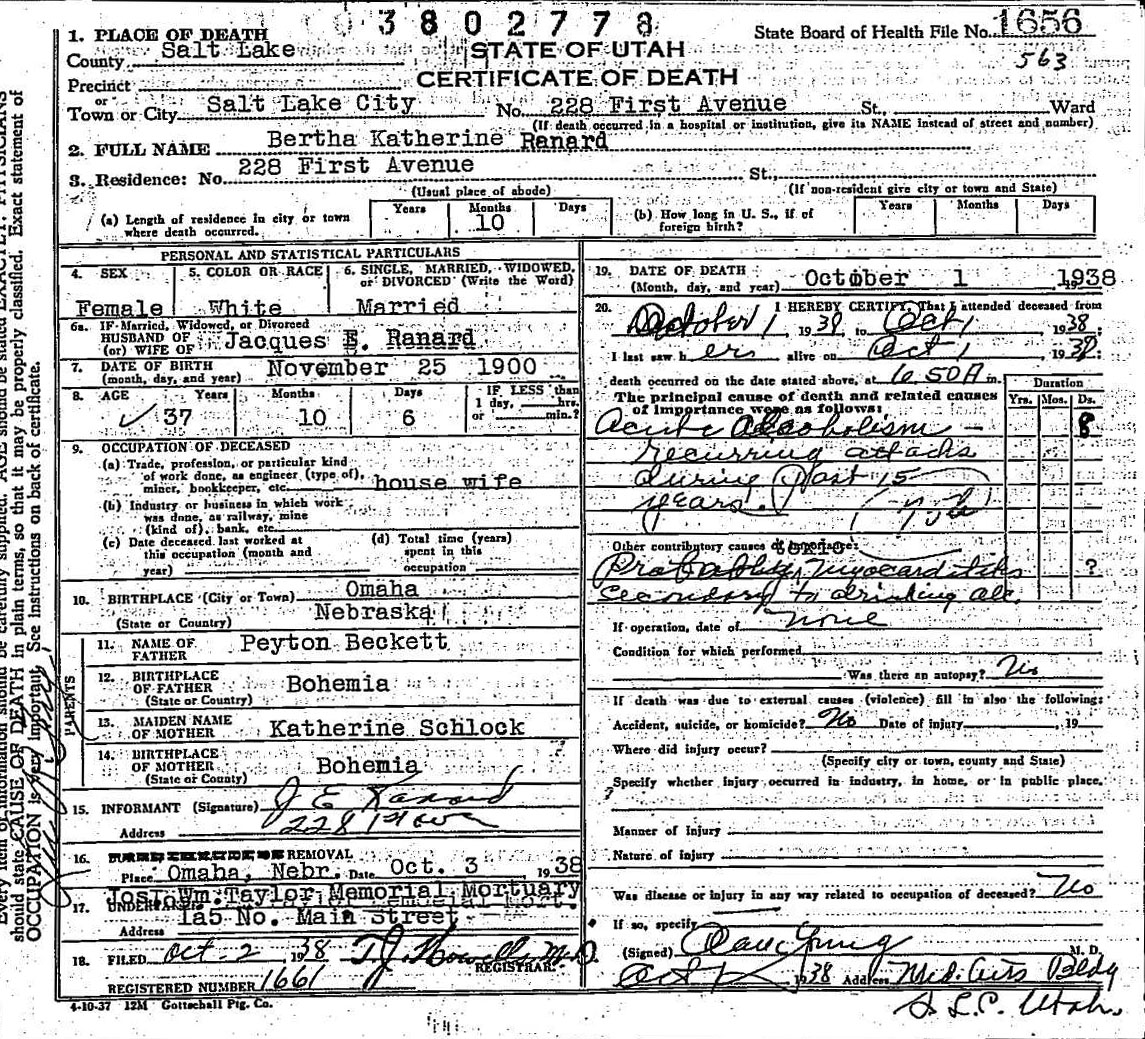 3802778
State Board of Health File No. 1656
563
STATE OF UTAH
CERTIFICATE OF DEATH
1. PLACE OF DEATH
County Salt Lake
Precinct
or
Town or City Salt Lake City No. 228 First Avenue St., Ward
(If death occurred in a hospital or institution, give its NAME instead of street and number)
2. FULL NAME Bertha Katherine Ranard
3. Residence: No. 228 First Avenue St.,
(Usual place of abode) (If non-resident give city or town and State)
(a) Length of residence in city or town where death occurred. Years Months 10 Days
(b) How long in U. S., if of foreign birth? Years Months Days
PERSONAL AND STATISTICAL PARTICULARS
4. SEX Female
5. COLOR OR RACE White
6. SINGLE, MARRIED, WIDOWED, or DIVORCED (Write the Word) Married
6a. IF Married, Widowed, or Divorced
HUSBAND OF
(or) WIFE OF Jacques E. Ranard
7. DATE OF BIRTH
(month, day, and year) November 25 1900
8. AGE Years 37 Months 10 Days 6
IF LESS than
1 day, hrs.
or min.?
9. OCCUPATION OF DECEASED
(a) Trade, profession, or particular kind
of work done, as engineer (type of),
miner, bookkeeper, etc. house wife
(b) Industry or business in which work
was done, as railway, mine
(kind of), bank, etc.
(c) Date deceased last worked at
this occupation (month and
year)
(d) Total time (years)
spent in this
occupation
10. BIRTHPLACE (City or Town) Omaha
(State or Country) Nebraska
PARENTS
11. NAME OF
FATHER Peyton Beckett
12. BIRTHPLACE
OF FATHER Bohemia
(State or Country)
13. MAIDEN NAME
OF MOTHER Katherine Schlock
14. BIRTHPLACE
OF MOTHER Bohemia
(State or County)
15. INFORMANT (Signature) J E Ranard
Address 228 1st Ave
16. REMOVAL
Place Omaha, Nebr. Date Oct. 3 1938
17. UNDERTAKER Jos. Wm. Taylor Memorial Mortuary
Address No. Main Street
18. FILED Oct-2 1938 T J Howells M.D.
REGISTRAR.
REGISTERED NUMBER 1661
4-10-37 12M Gottschall Ptg. Co.
19. DATE OF DEATH
(Month, day, and year) October 1 1938
20. I HEREBY CERTIFY, That I attended deceased from
October 1 1938 to Oct 1 1938:
I last saw h er alive on Oct 1 1938:
death occurred on the date stated above, at 6 50 A m.
The principal cause of death and related causes
of importance were as follows:
Duration
Yrs. Mos. Ds.
Acute Alcoholism - 8
recurring attacks
during past 15
years.
Other contributory causes of importance:
Probably Myocarditis ?
secondary to drinking alc.
If operation, date of none
Condition for which performed
Was there an autopsy? No
If death was due to external causes (violence) fill in also the following:
Accident, suicide, or homicide? No Date of injury , 19
Where did injury occur?
(Specify city or town, county and State)
Specify whether injury occurred in industry, in home, or in public place.
Manner of Injury
Nature of injury
Was disease or injury in any way related to occupation of deceased? No
If so, specify
(Signed) M. D.
1938 Address Med. Arts Bldg
S. L. C. Utah.
should state CAUSE OF DEATH in plain terms, so that it may be properly classified. Exact statement of
OCCUPATION is very important. See instructions on back of certificate.